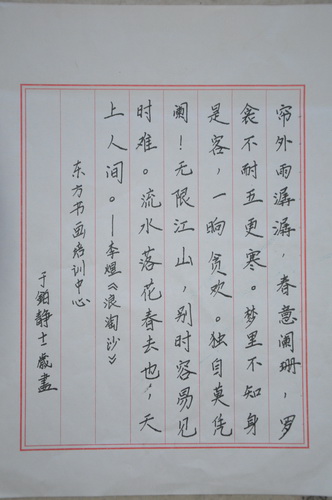 帘外雨潺潺，春意阑珊，罗
衾不耐五更寒。梦里不知身
是客，一晌贪欢。独自莫凭
阑！无限江山，别时容易见
时难。流水落花春去也，天
上人间。——李煜《浪淘沙》
东方书画培训中心
于铂静士岁画